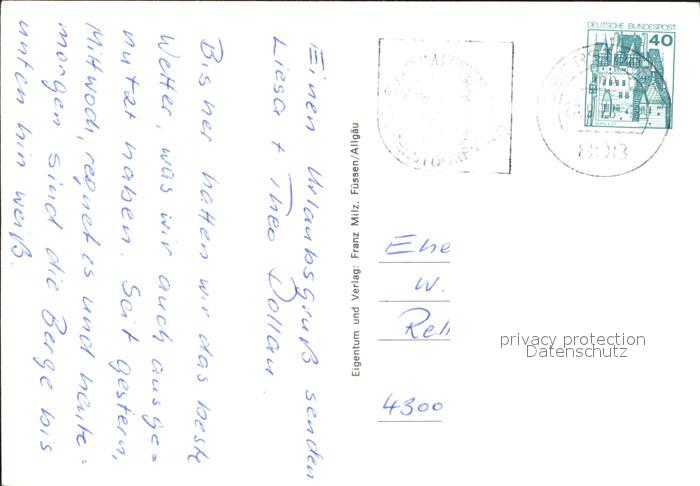 Einen Urlaubsgruß senden
Liesa + Theo Dollau.
Bisher hatten wir das beste
Wetter, was wir auch ausge=
nutzt haben. Seit gestern,
Mittwoch, regnet es und heute=
morgen sind die Berge bis
unten hin weiß.
Eigentum und Verlag: Franz Milz, Füssen/Allgäu
DEUTSCHE BUNDESPOST
40
Ehe
W.
Rell
4300
privacy protection
Datenschutz